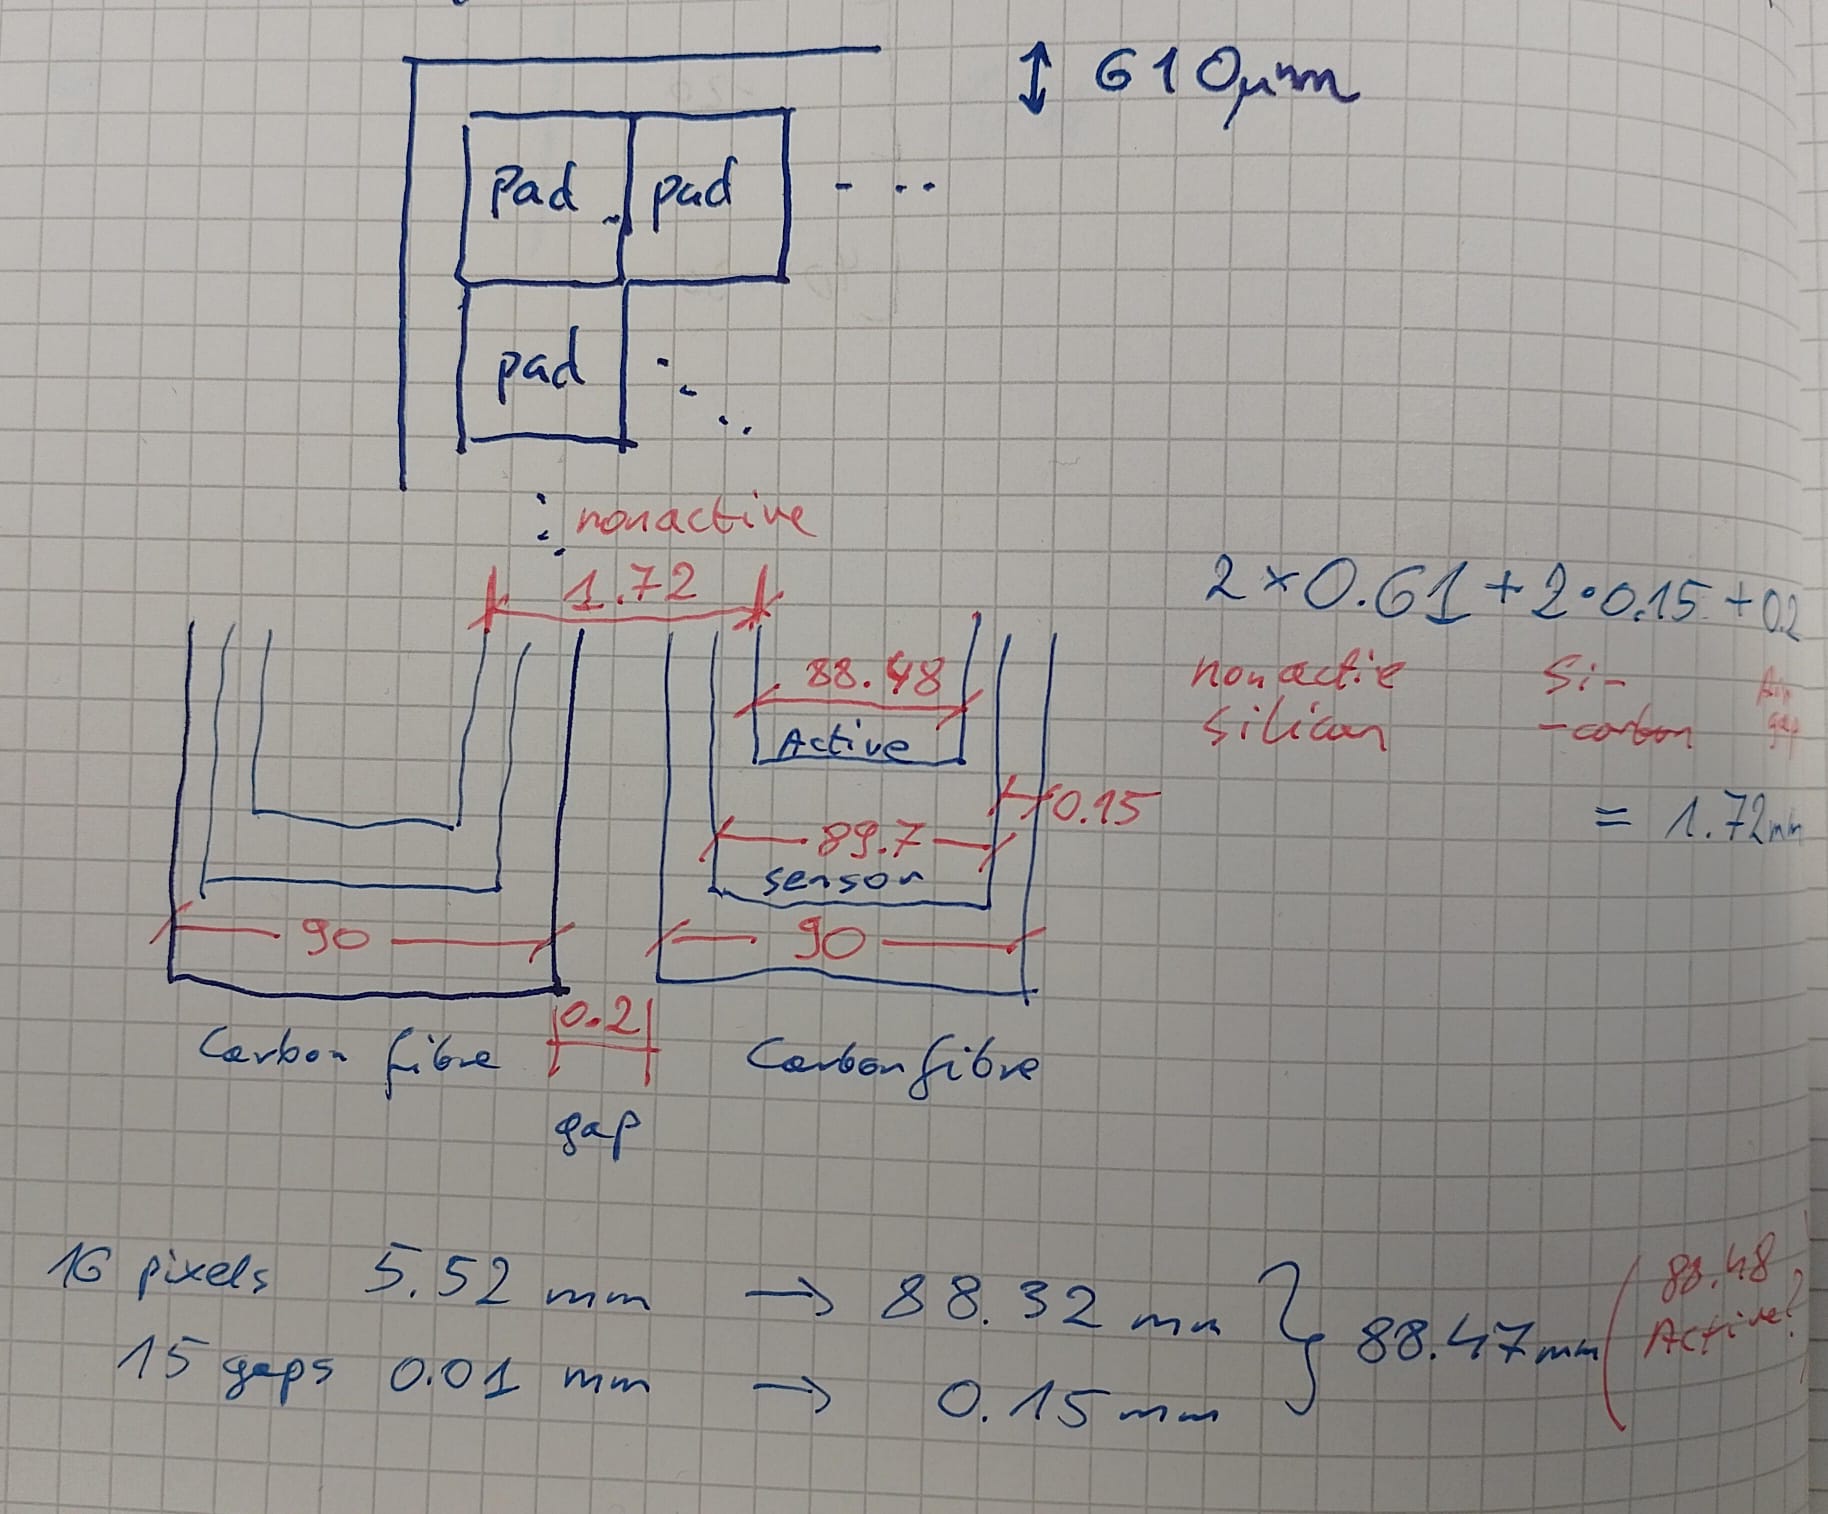 610μm
pad pad - ..
pad
nonactive
1.72
2×0.61+2·0.15+0.2
nonactie Si- Air
silicon -carbon gap
= 1.72mm
88.48
Active
0.15
89.7
sensor
90
90
0.2
Carbon fibre
Carbon fibre
gap
16 pixels 5.52 mm → 88.32 mm
15 gaps 0.01 mm → 0.15 mm
} 88.47mm
(88.48
Active?)